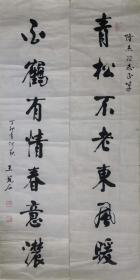 青松不老東風暖
白鶴有情春意濃
丁卯